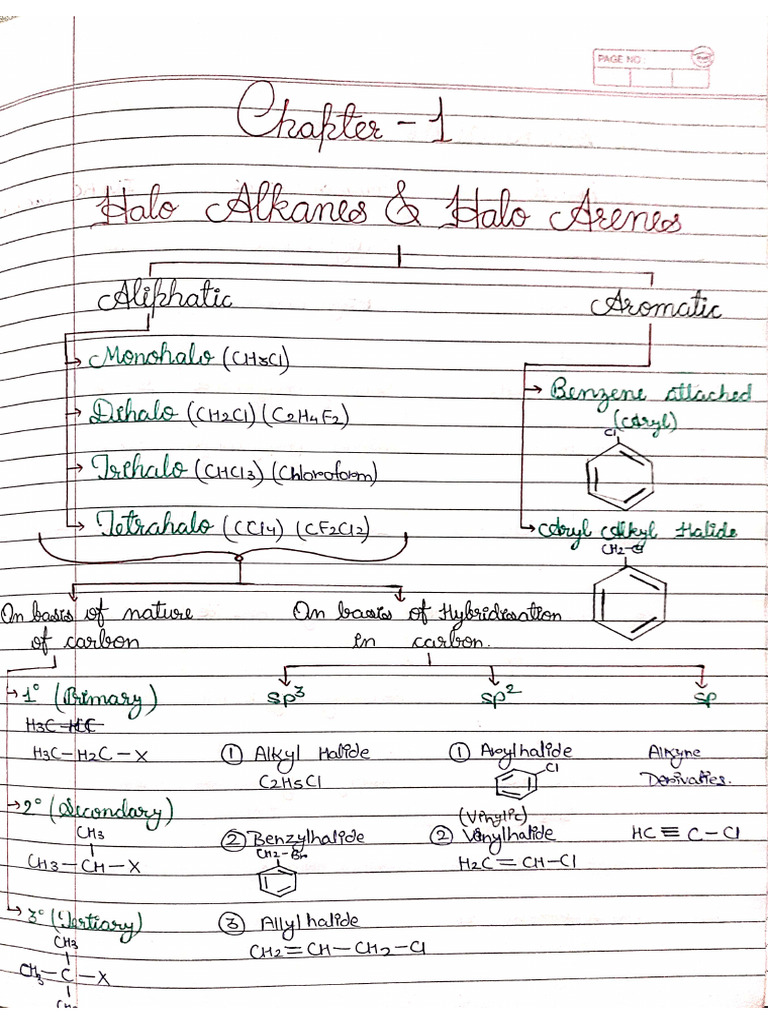 PAGE NO:
Chapter - 1
Halo Alkanes & Halo Arenes
Aliphatic
Aromatic
Monohalo (CH3Cl)
Dihalo (CH2Cl) (C2H4F2)
Trihalo (CHCl3) (Chloroform)
Tetrahalo (CCl4) (CF2Cl2)
Benzene attached
(Aryl)
Cl
Aryl Alkyl Halide
CH2-Cl
On basis of nature
of carbon
On basis of Hybridisation
in carbon.
1° (Primary)
H3C-HC
H3C-H2C-X
2° (Secondary)
CH3
CH3-CH-X
3° (Tertiary)
CH3
CH3-C-X
SP3
① Alkyl Halide
C2H5Cl
② Benzylhalide
CH2-Br
③ Allylhalide
CH2=CH-CH2-Cl
SP2
① Arylhalide
Cl
(Vinylic)
② Vinylhalide
H2C=CH-Cl
SP
Alkyne
Derivaties.
HC≡C-Cl